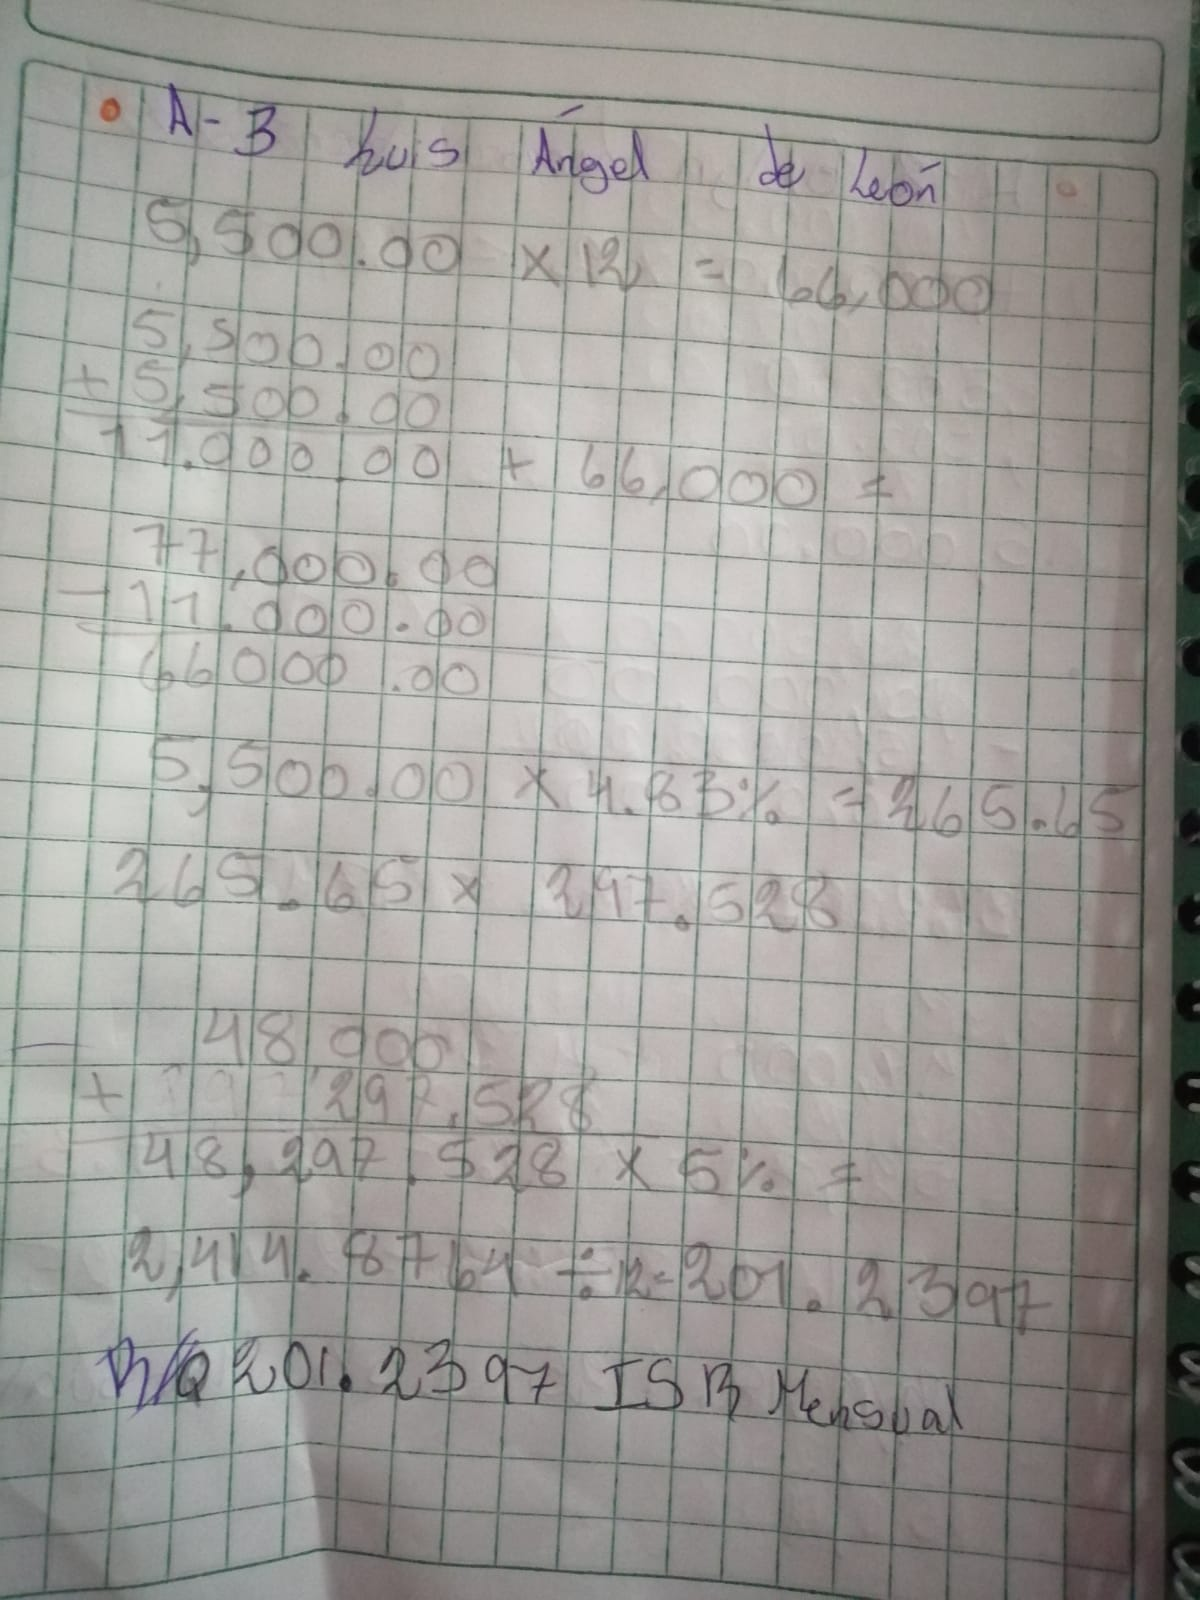 A-B Luis Ángel de León
5,500.00 x 12 = 66,000
5,500.00
+ 5,500.00
11.000.00 + 66,000 =
77,000.00
- 11.000.00
66000.00
5,500.00 x 4.83% = 265.65
265.65 x 297.528
48,000
+ 297.528
48,297.528 x 5% =
2,414.8764 ÷ 12 = 201.2397
R/Q 201.2397 ISR Mensual